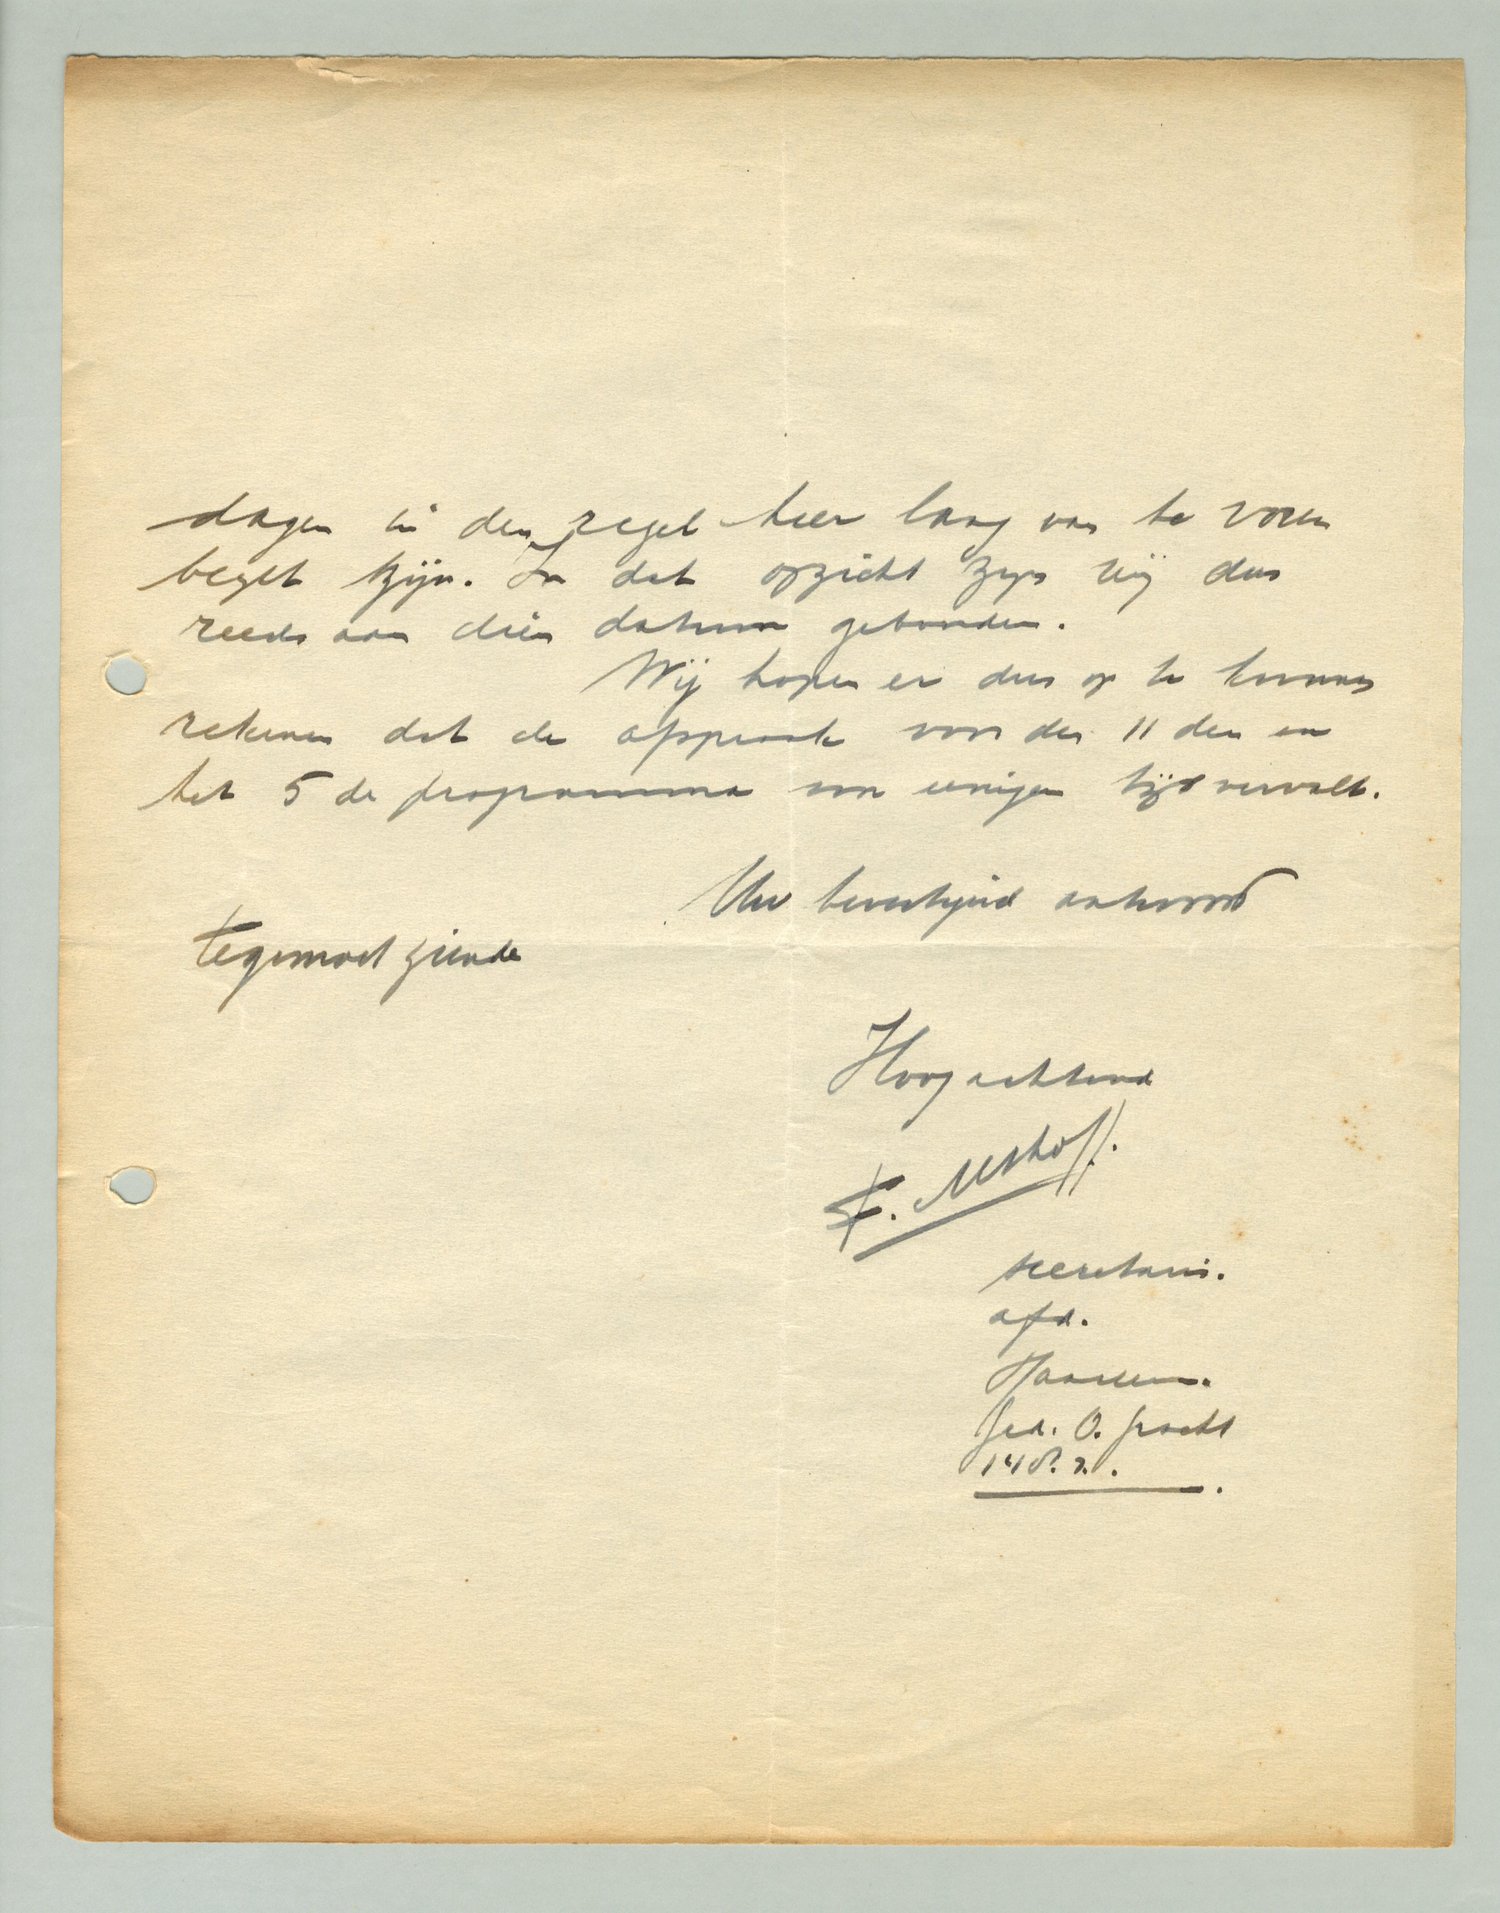 dagen in den regel hier lang van te voren
bezet zijn. In dat opzicht zijn wij dus
reeds aan dien datum gebonden.
Wij hopen er dus op te kunnen
rekenen dat de afspraak voor den 11 den en
het 5 de programma van eenigen tijd vervalt.
Uw bevestigend antwoord
tegemoet ziende
Hoogachtend
secretaris.
afd.
Haarlem.
Ged. O. gracht